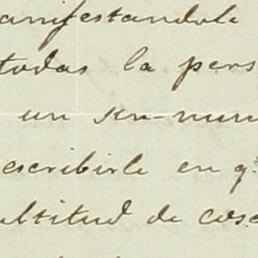 anifestandole
todas la pers
un sin-num
escribirle en q.
ultitud de cosa